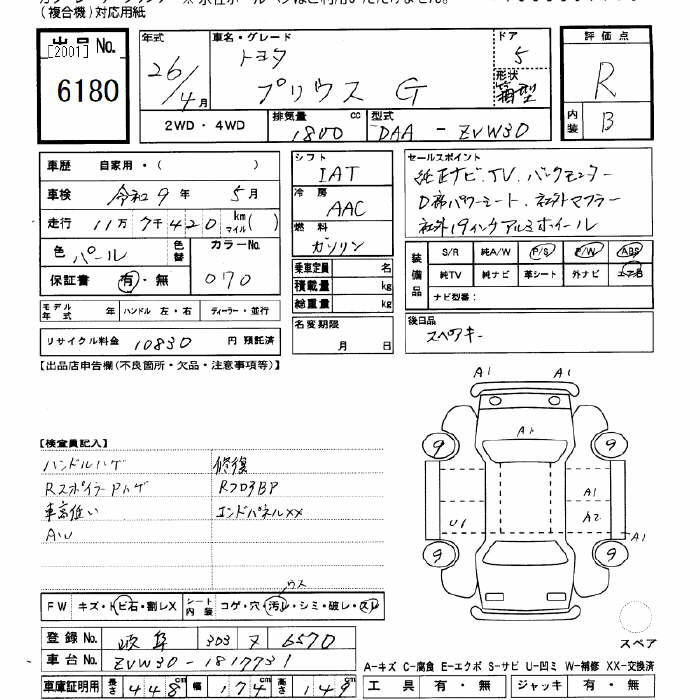 (複合機)対応用紙
出品No.
[2001]
6180
年式 26/4月
車名・グレード トヨタ プリウス G
ドア 5
形状 箱型
評価点 R
内装 B
2WD・4WD
排気量 1800 cc
型式 DAA-ZVW30
車歴 自家用・( )
車検 令和9年 5月
走行 11万7千420 km マイル( )
色 パール
色替
カラーNo. 070
保証書 有・無
モデル年式 年 ハンドル 左・右 ディーラー・並行
リサイクル料金 10830 円 預託済
シフト IAT
冷房 AAC
燃料 ガソリン
乗車定員 名
積載量 kg
総重量 kg
名変期限 月 日
セールスポイント
純正ナビ.TV.バックモニター
D席パワーシート.社外マフラー
社外19インチアルミホイール
装備品
S/R 純A/W P/S P/W ABS
純TV 純ナビ 革シート 外ナビ エアB
ナビ型番:
後日品
スペアキー
【出品店申告欄(不良箇所・欠品・注意事項等)】
【検査員記入】
ハンドルハゲ 修復
車高低い エンドパネルXX
AW
A1 A1
A1
9 9
A1
U1 A2 A1
9 9
スペア
FW キズ・トビ石・割レX
シート内装 コゲ・穴・汚レ・シミ・破レ・スレ
ウス
登録No. 岐阜 303 ヌ 6570
車台No. ZVW30-1817731
車庫証明用 長さ 448cm 幅 174cm 高さ 149cm
A-キズ C-腐食 E-エクボ S-サビ U-凹ミ W-補修 XX-交換済
工具 有・無 ジャッキ 有・無